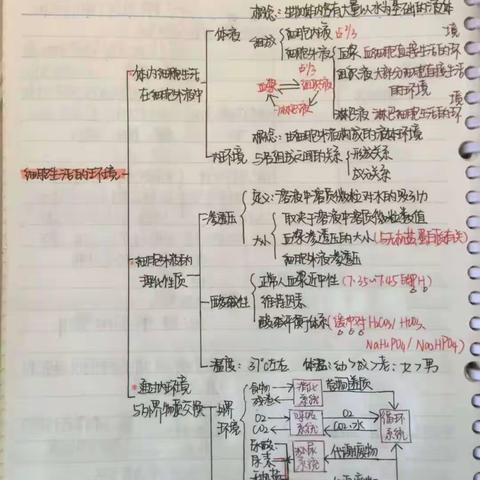 概念:生物体内含有大量以水为基础的液体
体液
组成
细胞内液 占2/3
细胞外液
占1/3
血浆 血细胞直接生活的环境
组织液 大部分细胞直接生活的环境
淋巴液 淋巴细胞生活的环境
血浆 组织液
淋巴液
体内细胞生活在细胞外液中
概念:由细胞外液构成的液体环境
内环境
与各组成之间的关系
形态关系
成分关系
细胞生活的环境
定义:溶液中溶质微粒对水的吸引力
渗透压
大小
取决于溶液中溶质微粒数值
血浆渗透压的大小(与无机盐、蛋白质有关)
细胞外液渗透压
细胞外液的理化性质
酸碱性
正常人血浆近中性(7.35~7.45 PH)
维持因素
酸碱平衡体系(缓冲对 H₂CO₃/HCO₃,
NaH₂PO₄/Na₂HPO₄)
温度: 37℃左右 体温:幼>成>老; 女>男
*通过内环境与外界物质交换
外界环境
食物
消化系统
营养物质
O₂
CO₂
呼吸系统
O₂
CO₂、水
循环系统
尿酸
尿素
泌尿系统
代谢废物
代谢废物